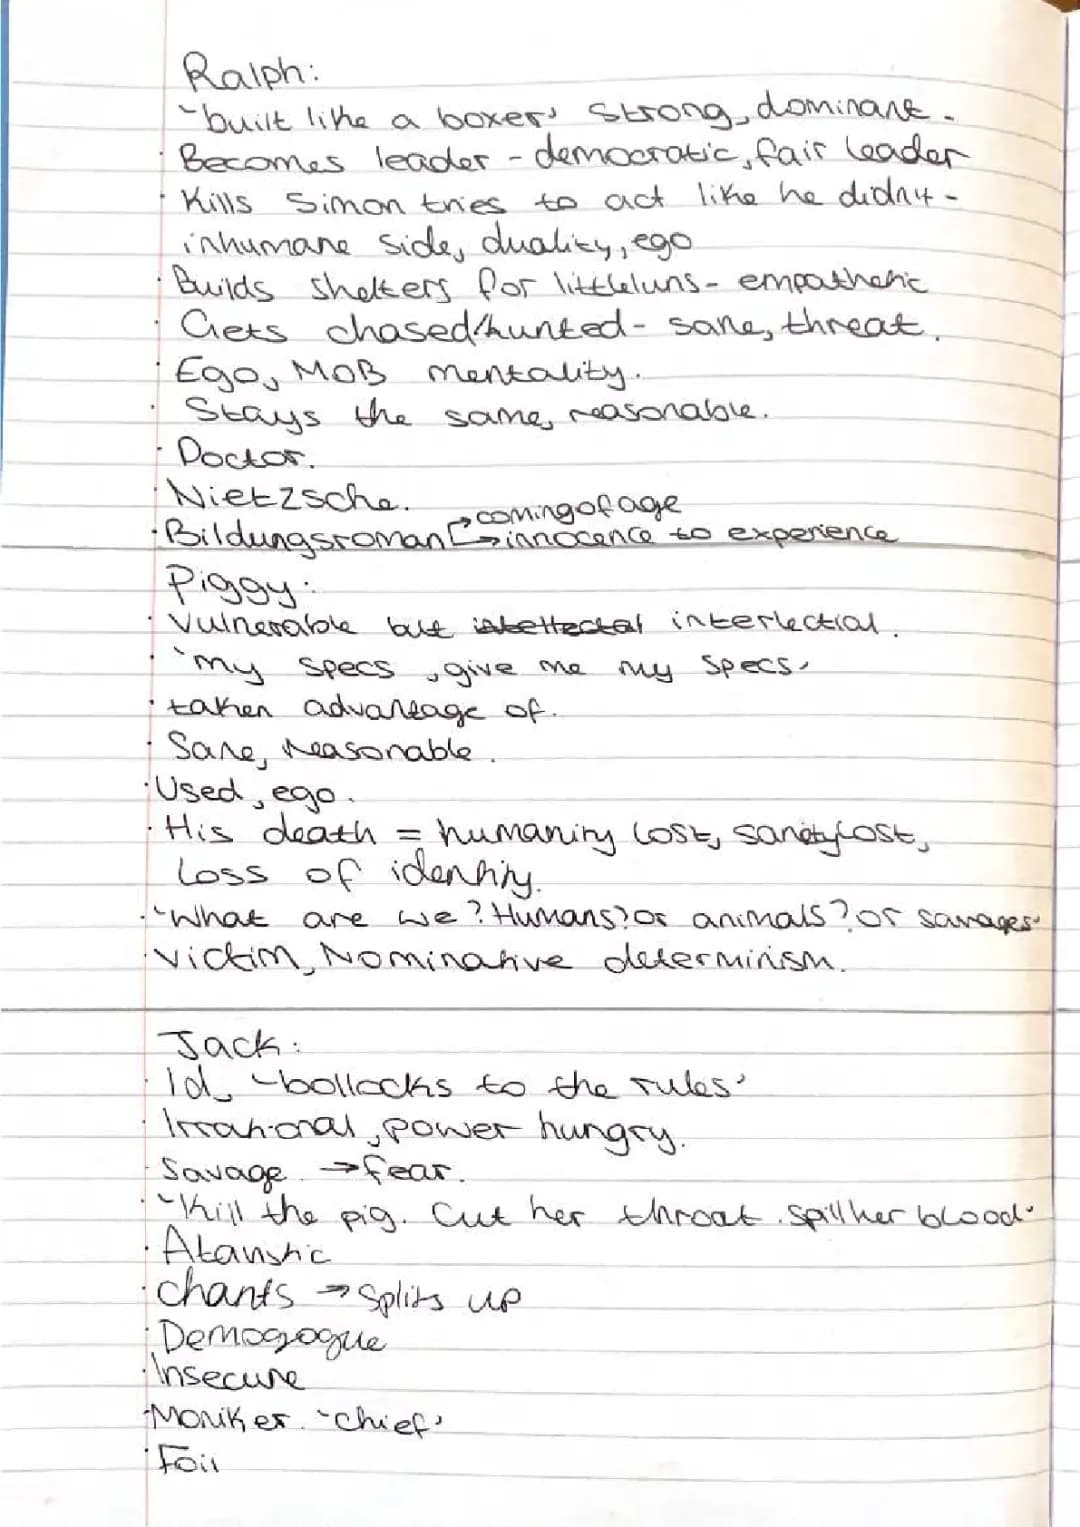 Ralph:
'built like a boxer' Strong, dominant.
· Becomes leader - democratic, fair leader
· Kills Simon tries to act like he didn't -
inhumane side, duality, ego
· Builds shelters for littleluns - empathetic
· Gets chased/hunted - sane, threat.
· Ego, MOB mentality.
· Stays the same, reasonable.
· Doctor.
· Nietzsche.
→ coming of age
· Bildungsroman → innocence to experience
Piggy:
· Vulnerable but intellectal interlectial.
· 'my specs, give me my specs'
· taken advantage of.
· Sane, reasonable.
· Used, ego.
· His death = humanity lost, sanity lost,
loss of identity.
· 'What are we? Humans? or animals? or savages'
· Victim, Nominative determinism.
Jack:
· Id, 'bollocks to the rules'
· Irrational, power hungry.
· Savage → fear.
· 'Kill the pig. Cut her throat. spill her blood'
· Atavistic
· chants → splits up
· Demogogue
· Insecure
· Moniker. 'chief'
· Foil